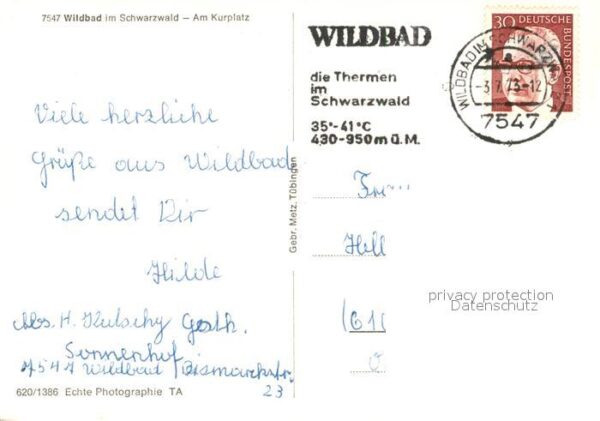 7547 Wildbad im Schwarzwald – Am Kurplatz
WILDBAD
die Thermen
im
Schwarzwald
35°-41°C
430-950m ü.M.
30 DEUTSCHE
BUNDESPOST
WILDBAD IM SCHWARZW
-3.7.73-12
7547
Viele herzliche
Grüße aus Wildbad
sendet Dir
Hilde
Abs. H. Gasth.
Sonnenhof
7547 Wildbad Bismarckstr.
23
Gebr. Metz, Tübingen
privacy protection
Datenschutz
620/1386 Echte Photographie TA